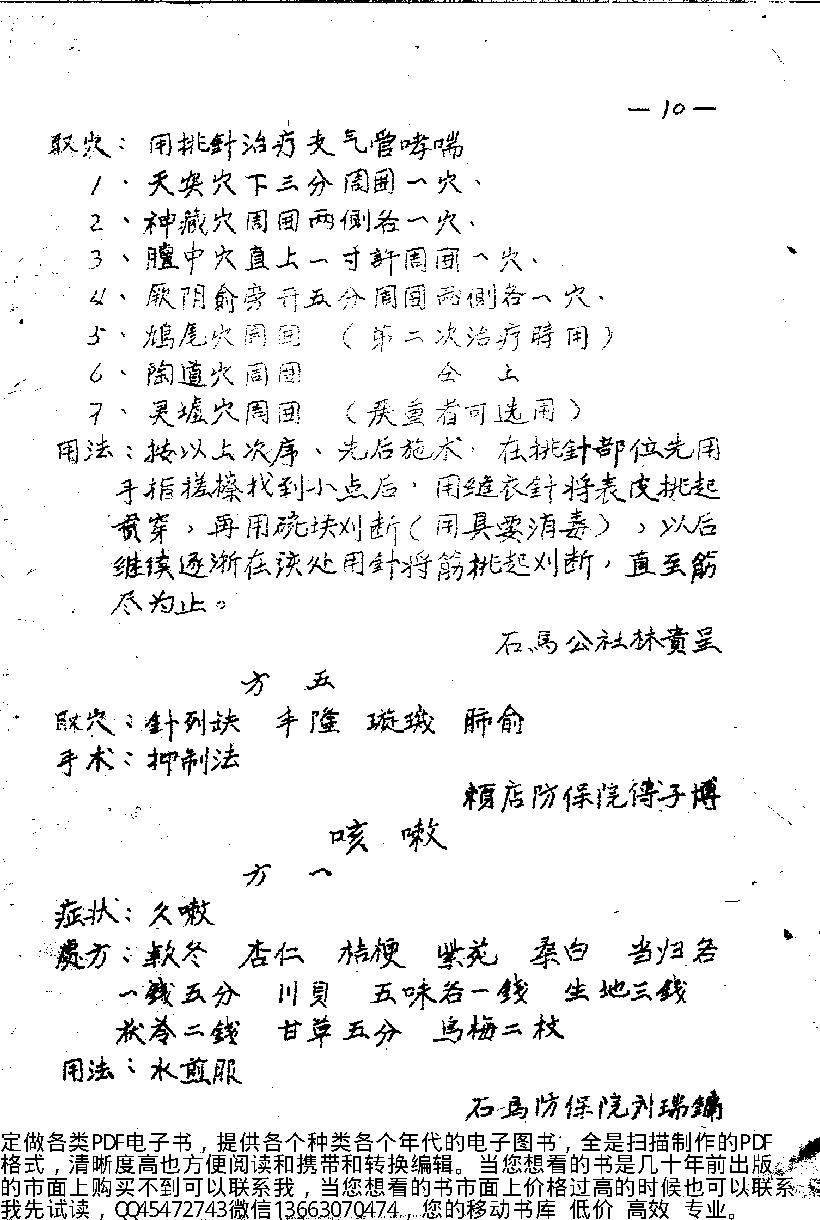 — 10 —
取穴：用挑針治疗支气管哮喘
1、天突穴下三分周囲一穴、
2、神藏穴周囲两側各一穴、
3、膻中穴直上一寸許周囲一穴、
4、厥阴俞旁开五分周囲两側各一穴、
5、鳩尾穴周囲 （第二次治疗時用）
6、陶道穴周囲 仝 上
7、灵墟穴周囲 （严重者可选用）
用法：按以上次序、先后施术，在挑針部位先用
手指搓擦找到小点后，用缝衣針将表皮挑起
贯穿，再用硫块刈断（用具要消毒），以后
继续逐渐在该处用針将筋挑起刈断，直至筋
尽为止。
石馬公社林貴呈
方 五
取穴：針列缺 丰隆 璇璣 肺俞
手术：抑制法
賴店防保院傅子博
咳 嗽
方 一
症状：久嗽
處方：款冬 杏仁 桔梗 紫苑 桑白 当归各
一錢五分 川貝 五味各一錢 生地三錢
茯苓二錢 甘草五分 烏梅二枝
用法：水煎服
石馬防保院刘瑞
定做各类PDF电子书，提供各个种类各个年代的电子图书，全是扫描制作的PDF
格式，清晰度高也方便阅读和携带和转换编辑。当您想看的书是几十年前出版
的市面上购买不到可以联系我，当您想看的书市面上价格过高的时候也可以联系
我先试读，QQ45472743微信13663070474，您的移动书库 低价 高效 专业。